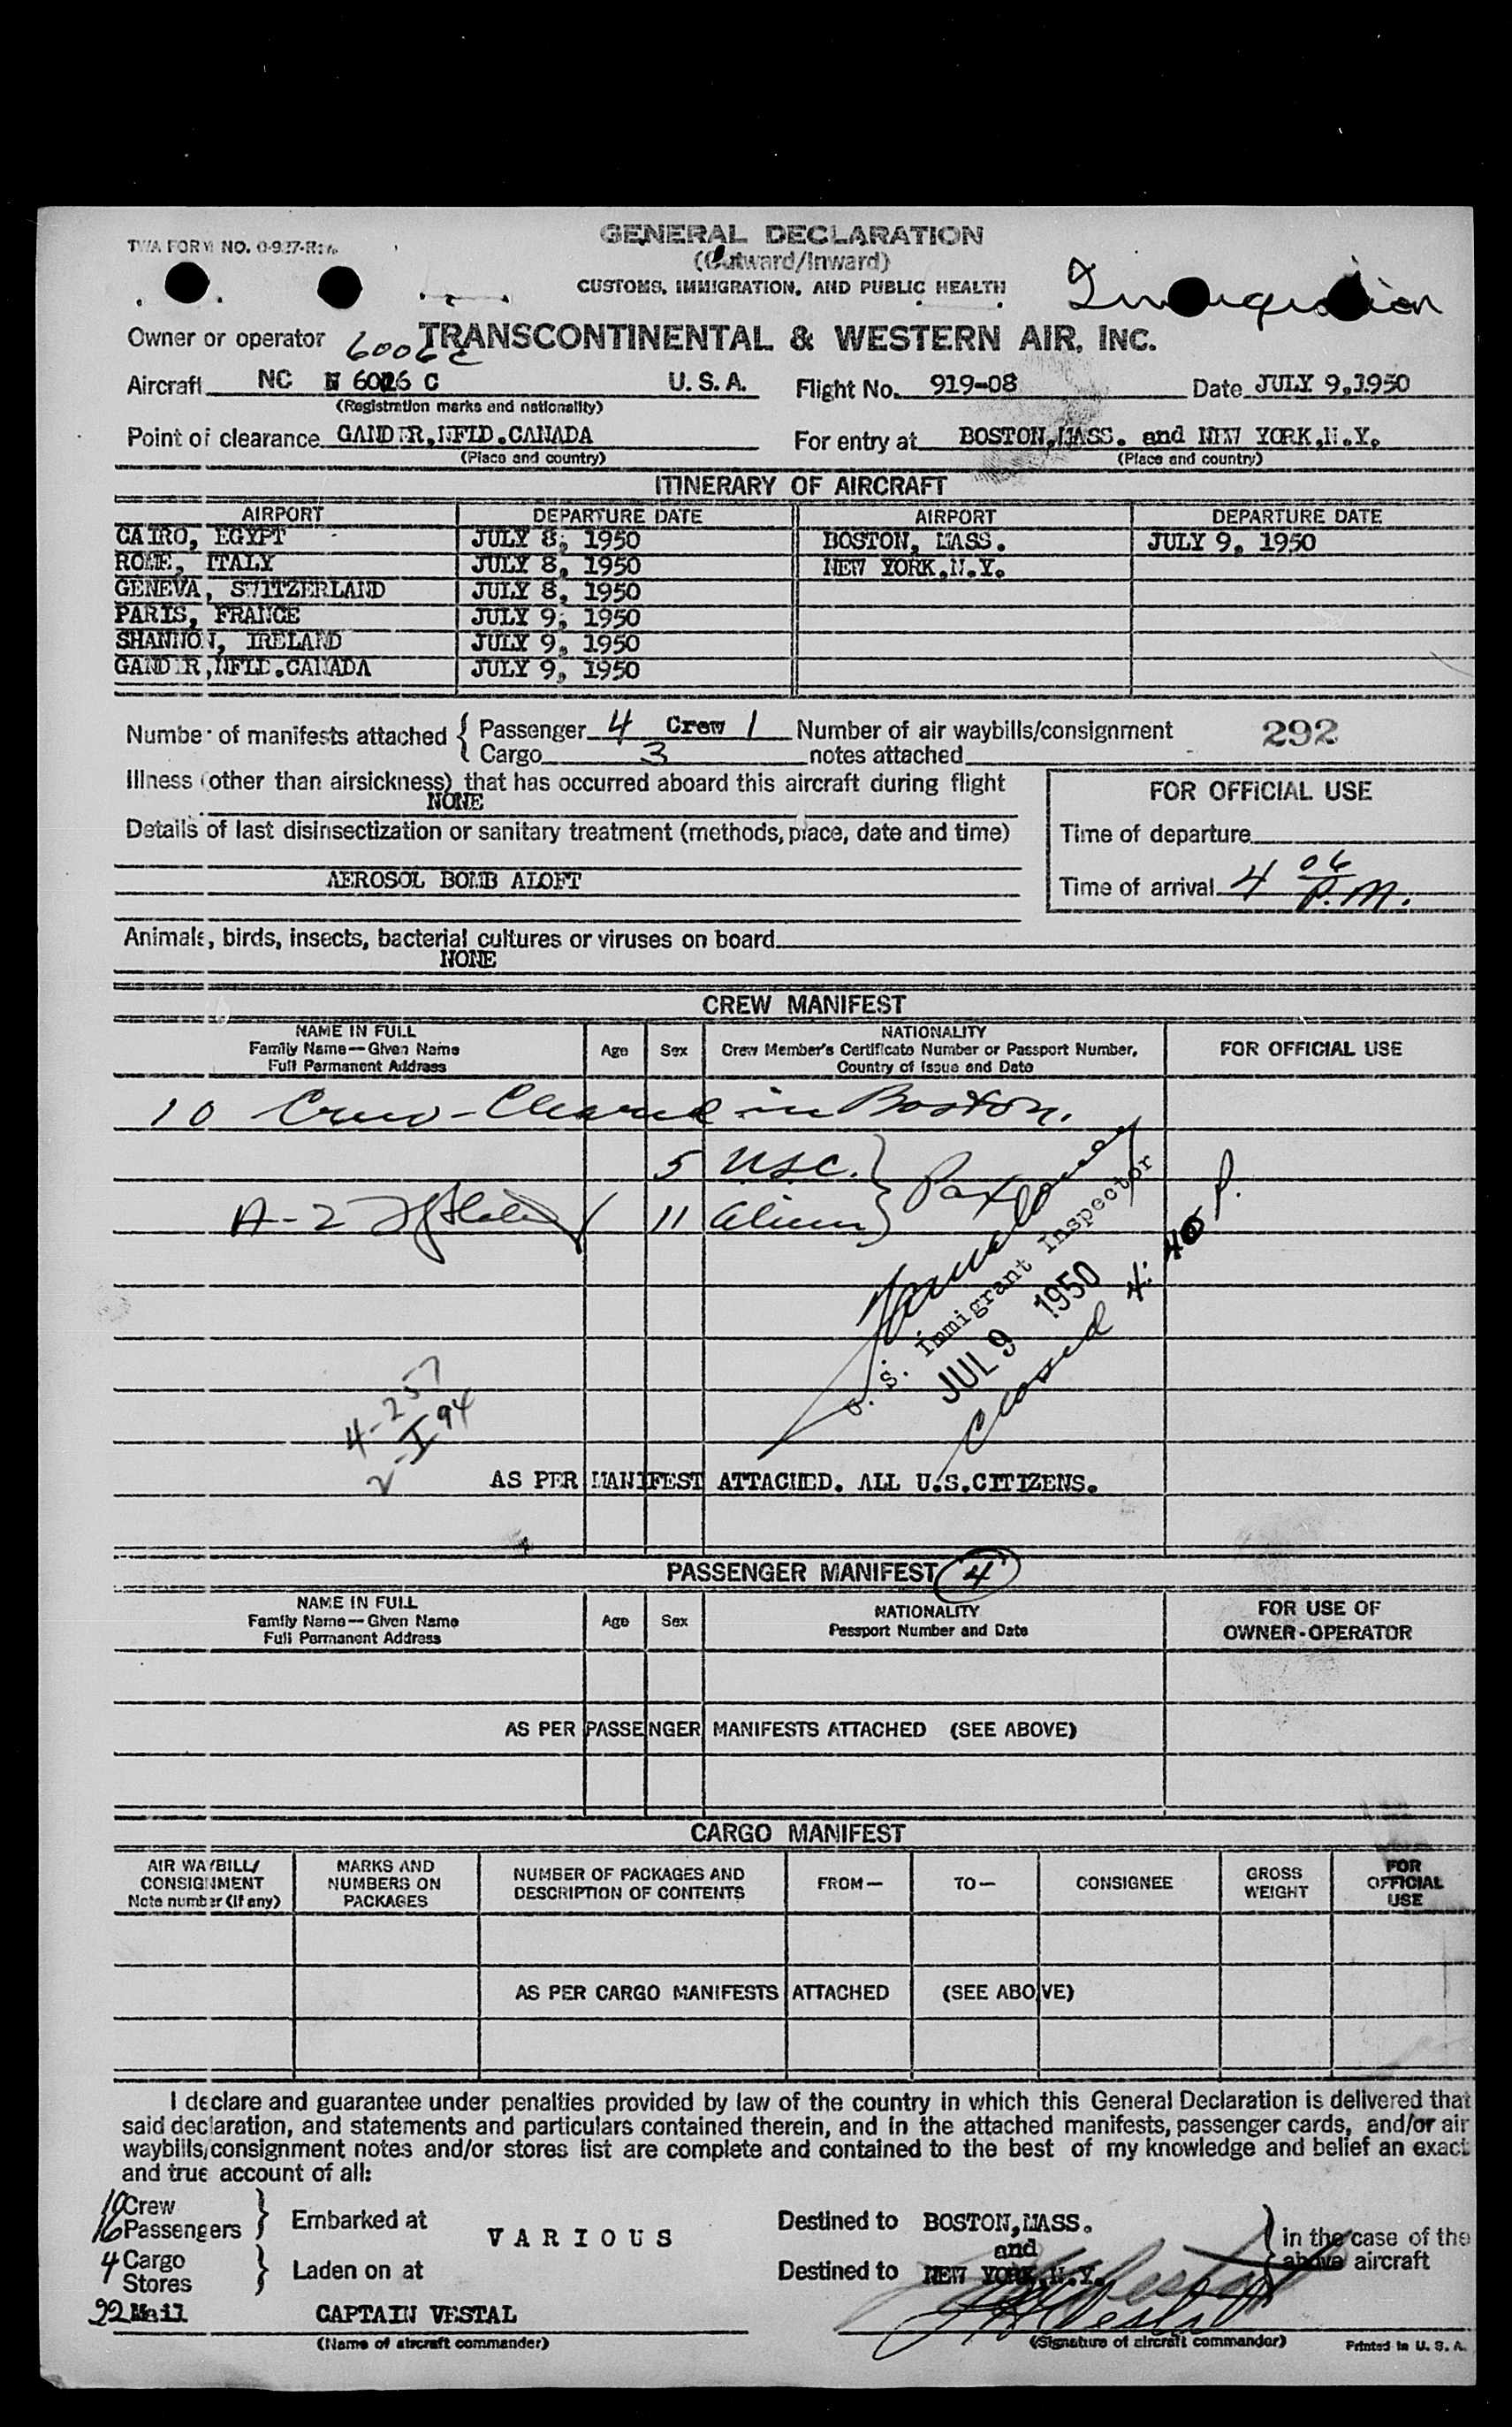 TWA FORM NO. 0-927-R
GENERAL DECLARATION
(Outward/Inward)
CUSTOMS, IMMIGRATION, AND PUBLIC HEALTH
Immigration
Owner or operator TRANSCONTINENTAL & WESTERN AIR, INC.
6006 C
Aircraft NC N 6026 C U. S. A. Flight No. 919-08 Date JULY 9,1950
(Registration marks and nationality)
Point of clearance GANDER,NFLD.CANADA For entry at BOSTON,MASS. and NEW YORK,N.Y.
(Place and country) (Place and country)
ITINERARY OF AIRCRAFT
AIRPORT DEPARTURE DATE AIRPORT DEPARTURE DATE
CAIRO, EGYPT JULY 8, 1950 BOSTON, MASS. JULY 9, 1950
ROME, ITALY JULY 8, 1950 NEW YORK,N.Y.
GENEVA, SWITZERLAND JULY 8, 1950
PARIS, FRANCE JULY 9, 1950
SHANNON, IRELAND JULY 9, 1950
GANDER,NFLD.CANADA JULY 9, 1950
Number of manifests attached { Passenger 4 Crew 1 Number of air waybills/consignment 292
Cargo 3 notes attached
Illness (other than airsickness) that has occurred aboard this aircraft during flight
NONE
FOR OFFICIAL USE
Details of last disinsectization or sanitary treatment (methods, place, date and time)
Time of departure
AEROSOL BOMB ALOFT
Time of arrival 4 06 P.M.
Animals, birds, insects, bacterial cultures or viruses on board
NONE
CREW MANIFEST
NAME IN FULL
Family Name—Given Name
Full Permanent Address
Age Sex
NATIONALITY
Crew Member's Certificate Number or Passport Number,
Country of Issue and Date
FOR OFFICIAL USE
10 Crew - Cleared in Boston.
5 USC. } Pax
A-2 11 Alien
U. S. Immigrant Inspector
JUL 9 1950
Closed 4:40 P.
4-257
2-I94
AS PER MANIFEST ATTACHED. ALL U.S.CITIZENS.
PASSENGER MANIFEST 4
NAME IN FULL
Family Name—Given Name
Full Permanent Address
Age Sex
NATIONALITY
Passport Number and Date
FOR USE OF
OWNER-OPERATOR
AS PER PASSENGER MANIFESTS ATTACHED (SEE ABOVE)
CARGO MANIFEST
AIR WAYBILL/
CONSIGNMENT
Note number (if any)
MARKS AND
NUMBERS ON
PACKAGES
NUMBER OF PACKAGES AND
DESCRIPTION OF CONTENTS
FROM— TO— CONSIGNEE
GROSS
WEIGHT
FOR
OFFICIAL
USE
AS PER CARGO MANIFESTS ATTACHED (SEE ABOVE)
I declare and guarantee under penalties provided by law of the country in which this General Declaration is delivered that
said declaration, and statements and particulars contained therein, and in the attached manifests, passenger cards, and/or air
waybills/consignment notes and/or stores list are complete and contained to the best of my knowledge and belief an exact
and true account of all:
10 Crew
16 Passengers } Embarked at VARIOUS Destined to BOSTON,MASS. } in the case of the
and
4 Cargo
Stores } Laden on at Destined to NEW YORK,N.Y. above aircraft
22 Mail CAPTAIN VESTAL Vestal
(Name of aircraft commander) (Signature of aircraft commander) Printed in U. S. A.